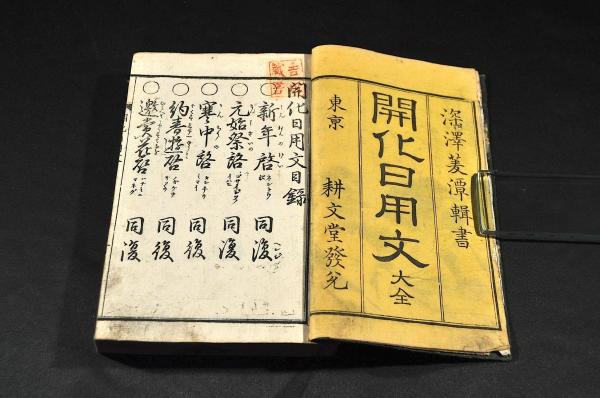 深澤菱潭輯書
開化日用文大全
東京 耕文堂發兌
開化日用文目録
○新年啓 同復
○元始祭啓 同復
○寒中啓 同復
○約春遊啓 同復
○邀賞花啓 同復